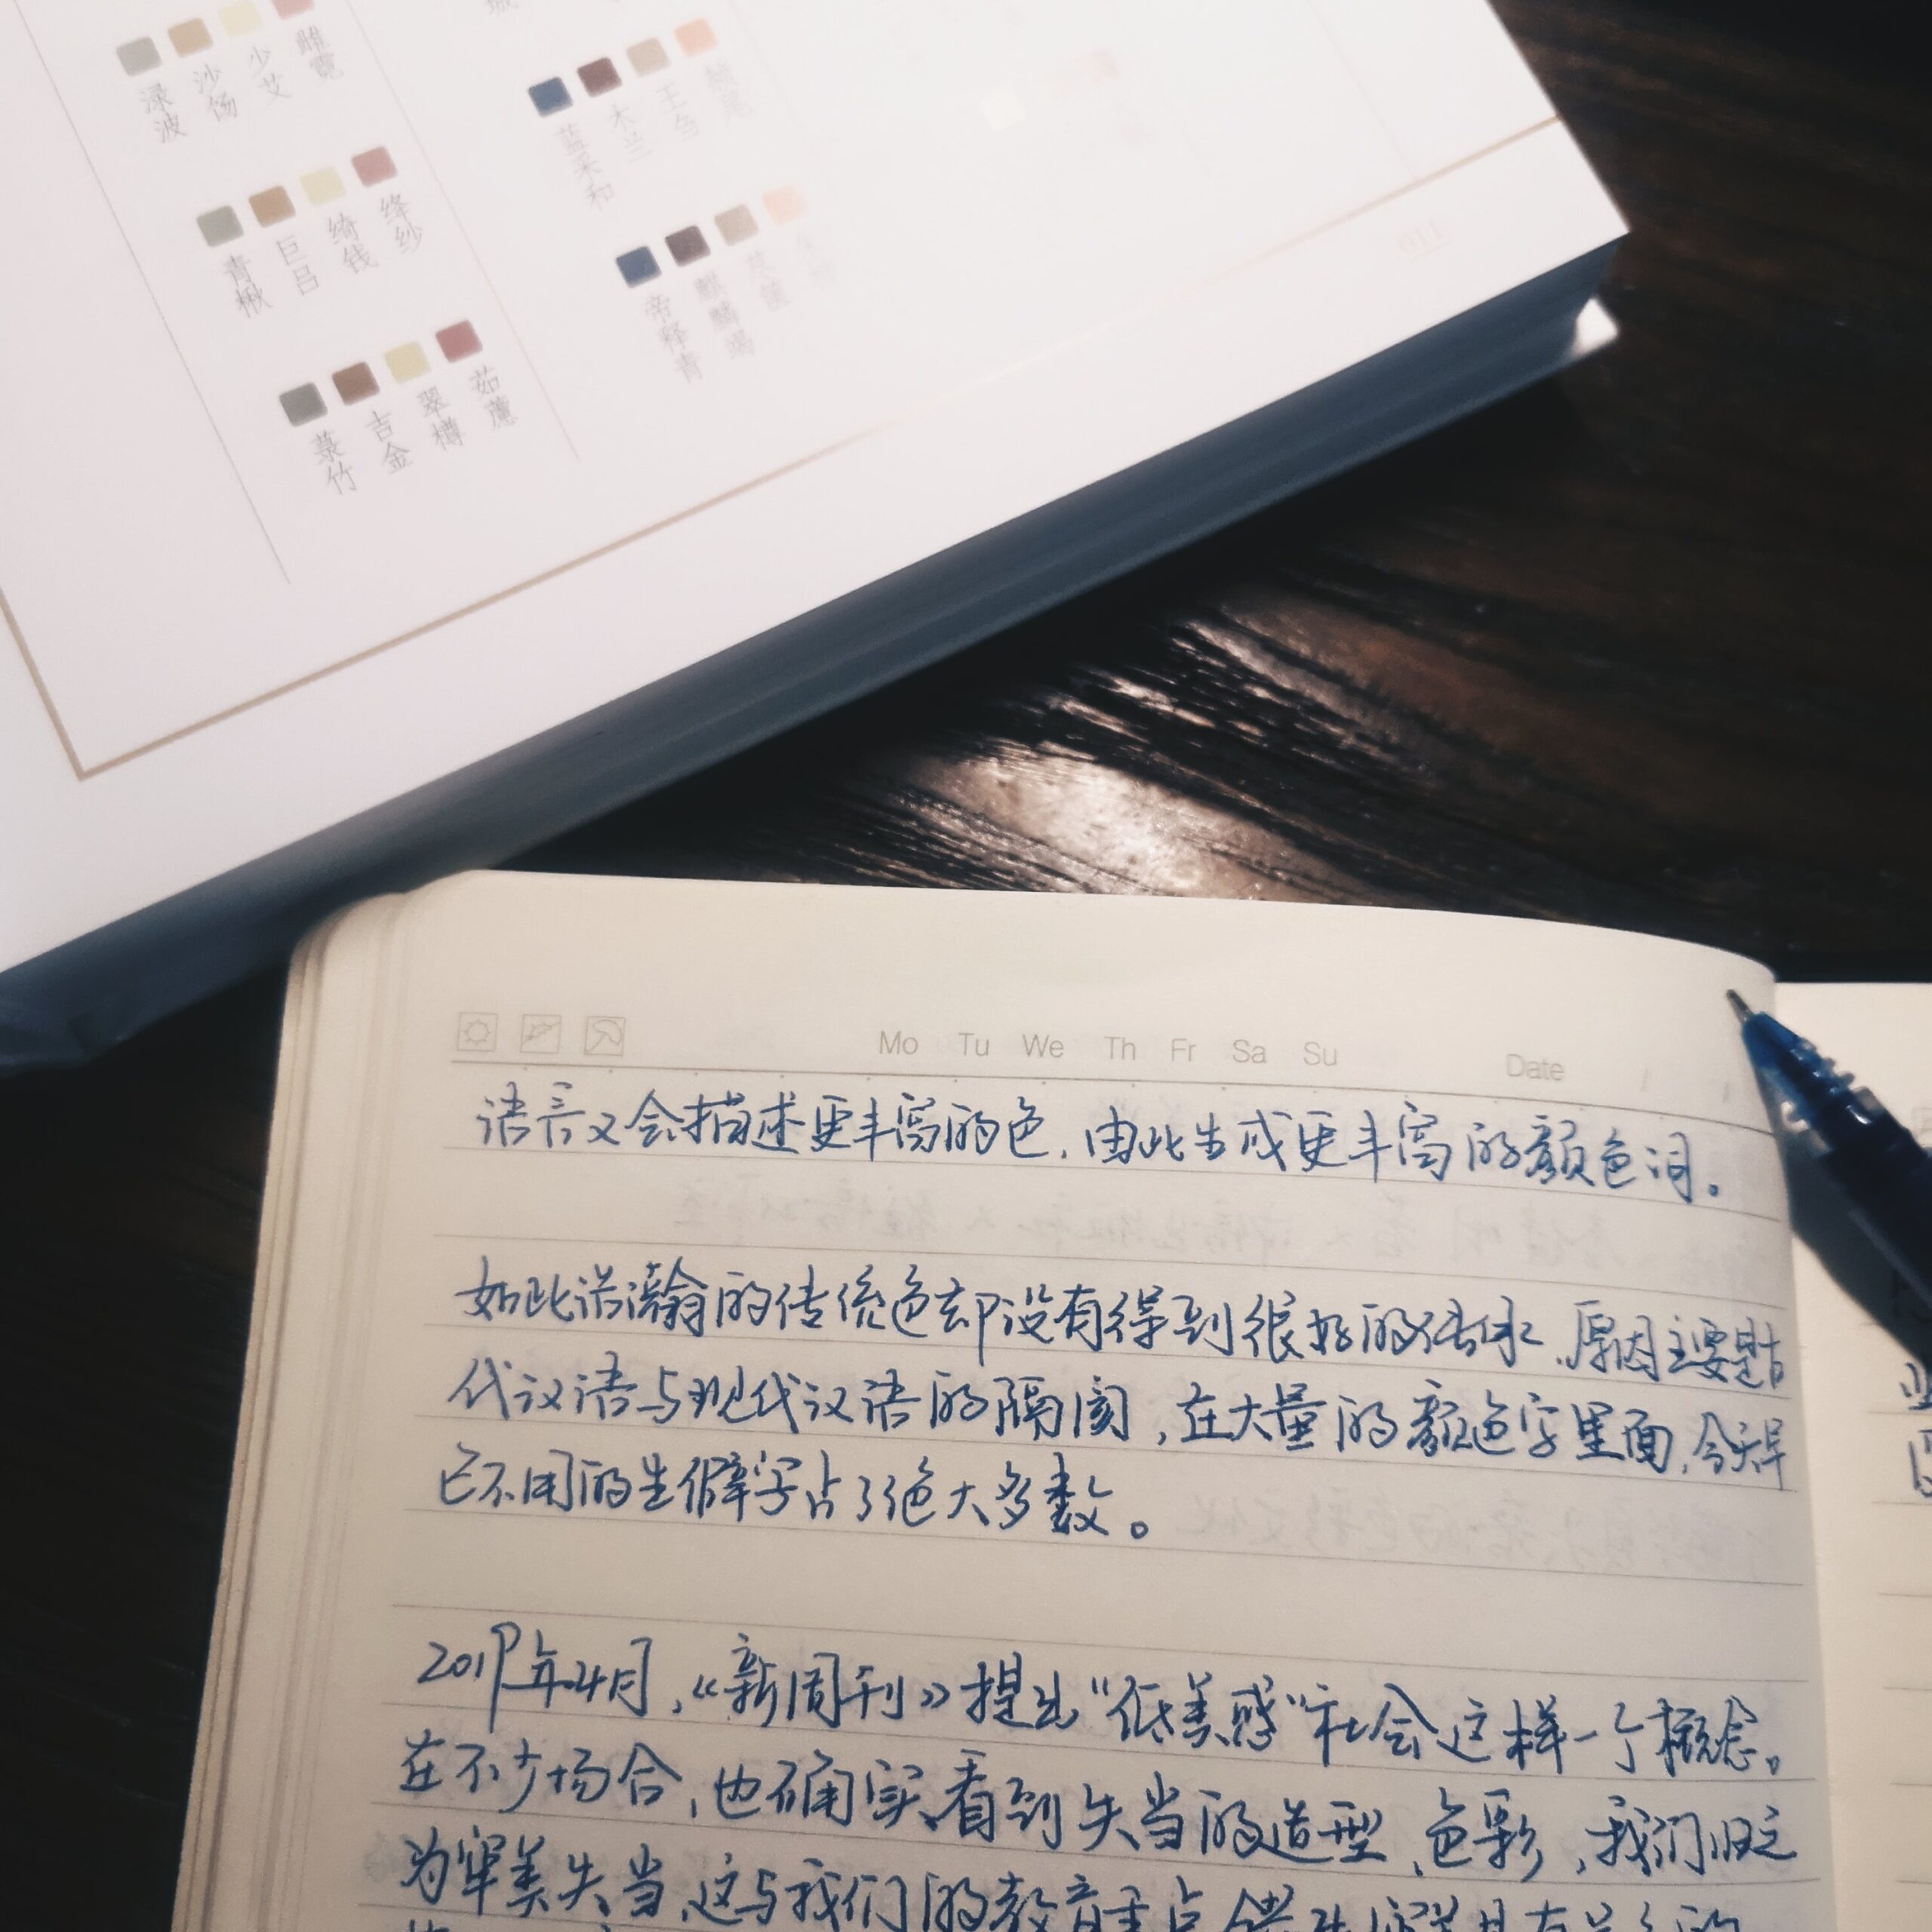 渌波 沙饧 少艾 雌霓
青楸 巨吕 绮钱 绛纱
菉竹 吉金 翠樽 茹藘
蓝采和 木兰 王刍 赪尾
帝释青 麒麟竭
011
Mo Tu We Th Fr Sa Su Date
语言又会描述更丰富的色,由此生成更丰富的颜色词。
如此浩瀚的传统色却没有得到很好的传承,原因主要是古
代汉语与现代汉语的隔阂,在大量的颜色字里面,今天早
已不用的生僻字占了绝大多数。
2019年4月,《新周刊》提出“低美感”社会这样一个概念。
在不少场合,也确实看到失当的造型、色彩,我们归之
为审美失当,这与我们的教育重点